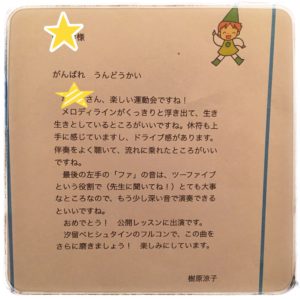 様
がんばれ　うんどうかい
さん、楽しい運動会ですね！
メロディラインがくっきりと浮き出て、生き
生きとしているところがいいですね。休符も上
手に感じていますし、ドライブ感があります。
伴奏をよく聴いて、流れに乗れたところがいい
ですね。
最後の左手の「ファ」の音は、ツーファイブ
という役割で（先生に聞いてね！）とても大事
なところなので、もう少し深い音で演奏できる
といいですね。
おめでとう！　公開レッスンに出演です。
汐留ベヒシュタインのフルコンで、この曲を
さらに磨きましょう！　楽しみにしています。
樹原涼子